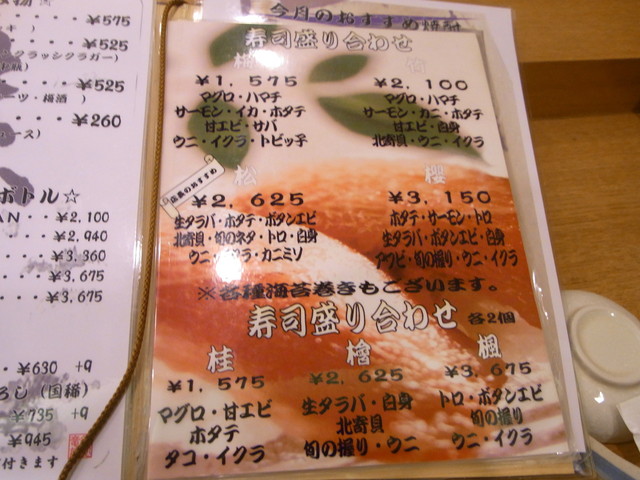 ・・・¥575
・・・¥525
クラッシクラガー)
・・・¥525
ーツ・梅酒 )
・・・¥260
ース)
ボトル☆
AN・・¥2,100
・・・¥2,940
・・・¥3,360
・・・¥3,675
・・・¥3,675
・¥630 +9
ろし (国稀)
・¥735 +9
¥945
付きます
今月のおすすめ焼酎
寿司盛り合わせ
¥1,575
マグロ・ハマチ
サーモン・イカ・ホタテ
甘エビ・サバ
ウニ・イクラ・トビッ子
竹
¥2,100
マグロ・ハマチ
サーモン・カニ・ホタテ
甘エビ・白身
北寄貝・ウニ・イクラ
店長のおすすめ
松
¥2,625
生タラバ・ホタテ・ボタンエビ
北寄貝・旬のネタ・トロ・白身
ウニ・イクラ・カニミソ
櫻
¥3,150
ホタテ・サーモン・トロ
生タラバ・ボタンエビ・白身
アワビ・旬の握り・ウニ・イクラ
※各種海苔巻きもございます。
寿司盛り合わせ 各2個
桂
¥1,575
マグロ・甘エビ
ホタテ
タコ・イクラ
檜
¥2,625
生タラバ・白身
北寄貝
旬の握り・ウニ
楓
¥3,675
トロ・ボタンエビ
旬の握り
ウニ・イクラ